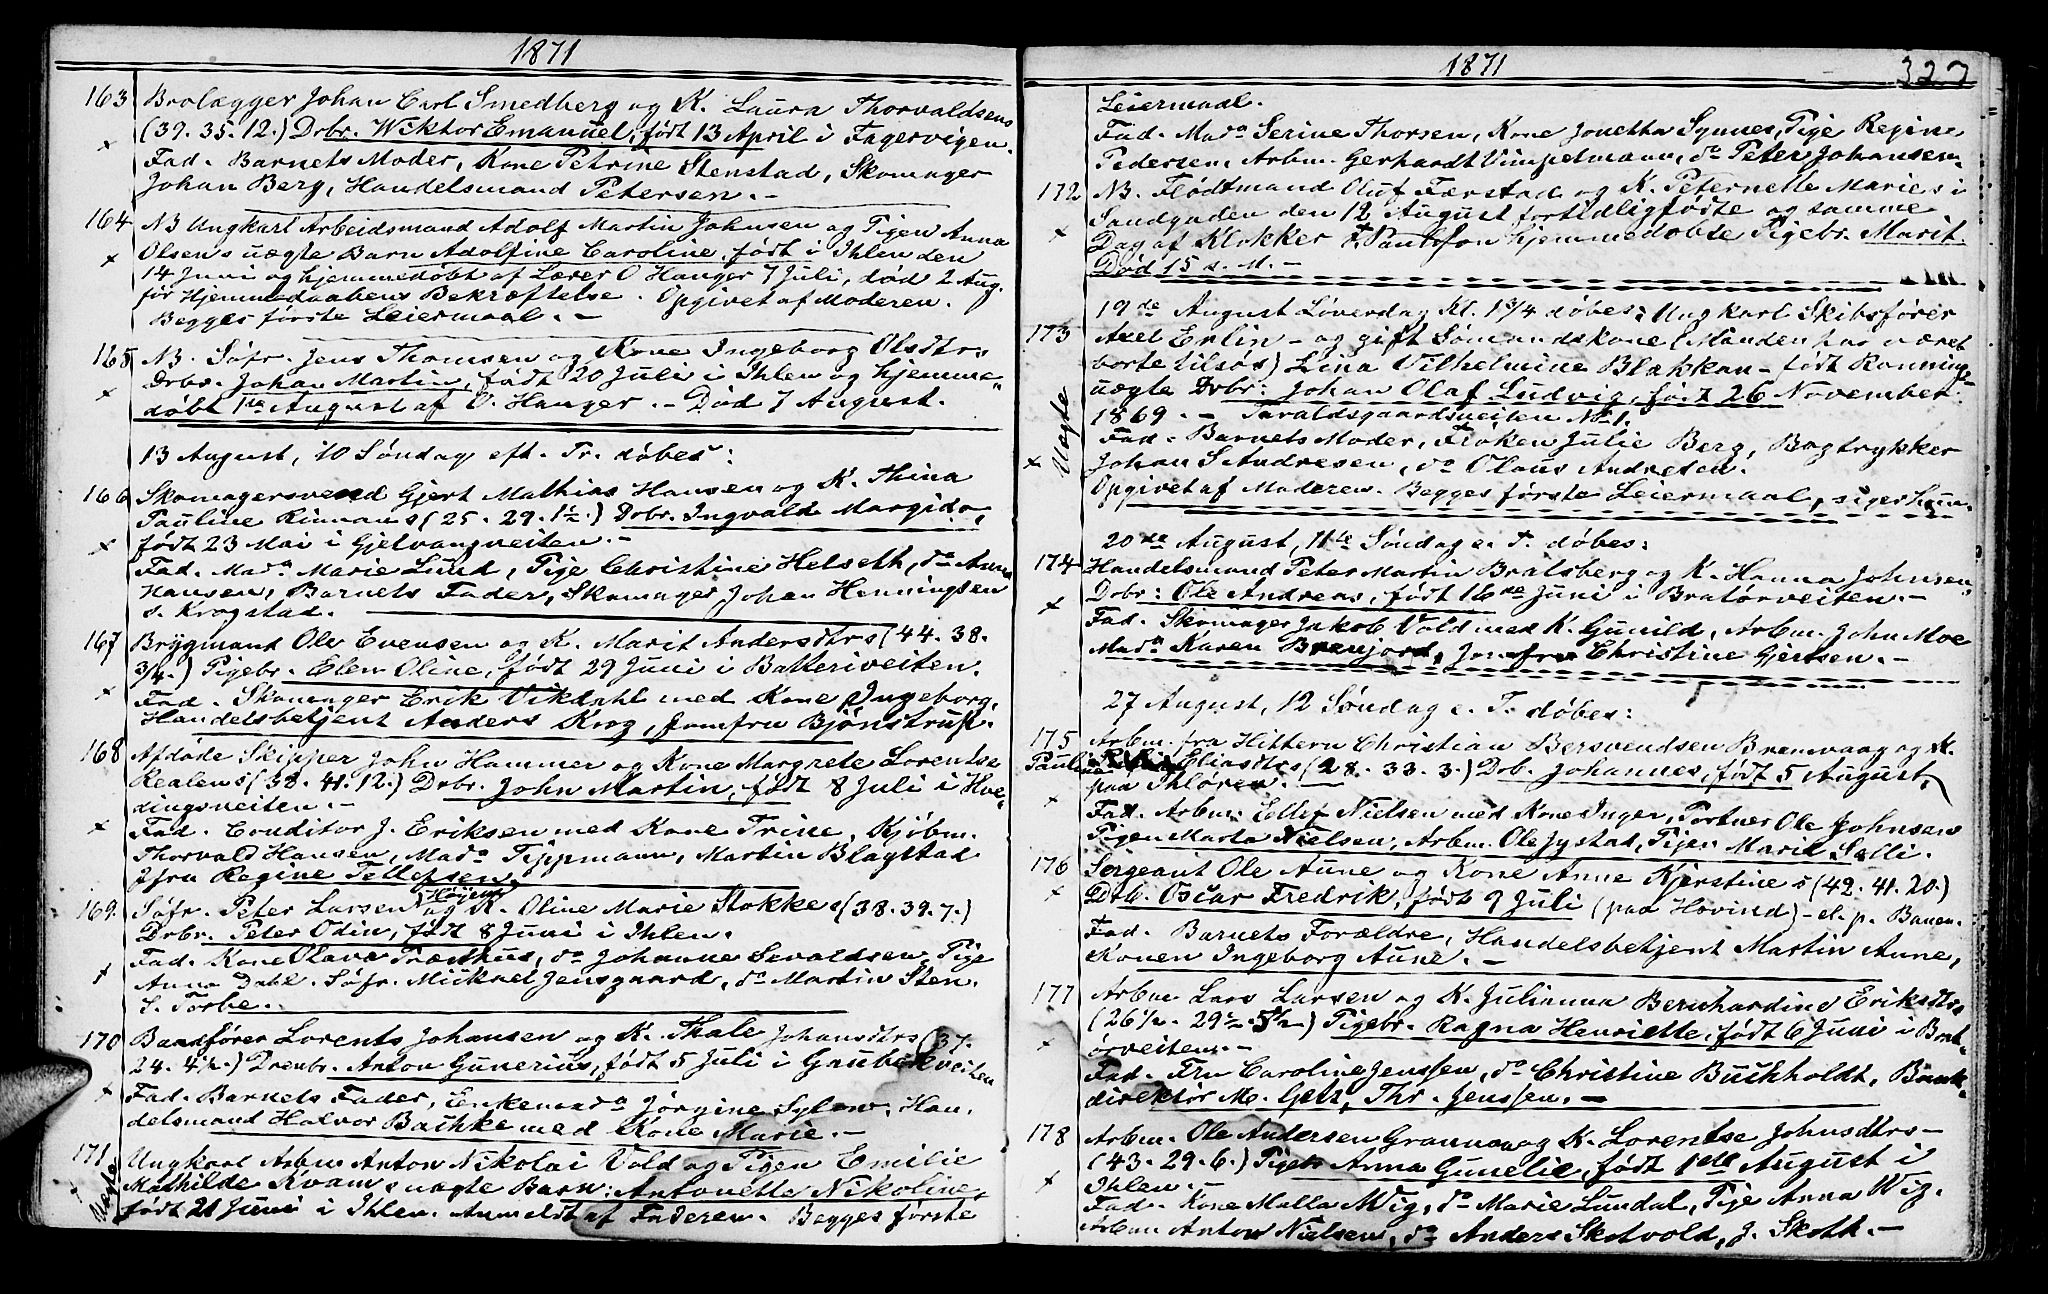 1871
163 Brolægger Johan Carl Smedberg og K. Laura Thorvaldsens
(39. 35. 12.) Drbr. Wiktor Emanuel, født 13 April i Fagervigen.
Fad. Barnets Moder, Kone Petrine Stenstad, Skomager
Johan Berg, Handelsmand Petersen.-
164 NB Ungkarl Arbeidsmand Adolf Martin Johnsen og Pigen Anna
Olsens uægte Barn Adolfine Caroline, født i Ihlen den
14 Juni og hjemmedøbt af Lærer O Hauger 7 Juli, død 2 Aug.
før Hjemmedaabens Bekræftelse. Opgivet af Moderen.
Begges første Leiermaal. -
165 NB. Søfr. Jens Thomsen og Kone Ingeborg Olsdtrs
Drbr. Johan Martin, født 20 Juli i Ihlen og hjemme-
døbt 1ste August af O. Hauger. - Død 7 August.
13 August, 10 Søndag eft. Tr. døbes:
166 Skomagersvend Gjert Mathias Hansen og K. Thina
Pauline Rinnans (25. 29. 1½.) Drbr. Ingvald Margido,
født 23 Mai i Gjelvangveiten. -
Fad. Madm Marie Lund, Pige Christine Helseth, do Anna
Hansen, Barnets Fader, Skomager Johan Henningsen
s. Krogstad.
167 Brygmand Ole Evensen og K. Marit Andersdtrs (44. 38.
3/4.) Pigebr. Elen Oline, født 29 Juni i Batteriveiten.
Fad. Skomager Erik Vikdahl med Kone Ingeborg,
Handelsbetjent Anders Krog, Jomfru Bjønstrup.
168 Afdøde Skipper John Hammer og Kone Margrete Lorentse
Realens (38. 41. 12.) Drbr. John Martin, født 8 Juli i Hve-
dingsveiten. -
Fad. Conditor J. Eriksen med Kone Trine, Kjøbm.
Thorvald Hansen, Madm Tippmann, Martin Blagstad
Jfru Regine Tellefsen.
169. Søfr. Peter Larsen Høijem og K. Oline Marie Stokkes (38. 39. 7.)
Drbr. Peter Odin, født 8 Juni i Ihlen.
Fad. Kone Olava Træthus, do Johanne Sevaldsen, Pige
Anna Dahl. Søfr. Mickael Jensgaard, do Martin Sten
s. Torbe.
170 Baadfører Lorents Johansen og K. Thale Johansdtrs (37.
24. 4½.) Drenbr. Anton Gunerius, født 5 Juli i Graubækveiten
Fad. Barnets Fader, Enkemadm Jørgine Sylow, Han-
delsmand Halvor Bachke med Kone Marie. -
171 Uægte Ungkarl Arbm Anton Nikolai Vold og Pigen Emilie
Mathilde Kvams uægte Barn: Antonette Nikoline,
født 21 Juni i Ihlen. Anmeldt af Faderen. Begges første
1871
327
Leiermaal.
Fad. Madm Serine Thorsen, Kone Jonetta Synnes, Pige Regine
Pedersen, Arbm. Gerhardt Vimpelmann, do Peter Johansen.
172 NB. Flødtmand Oluf Færstad og K. Peternelle Maries i
Sandgaden den 12 August fortidligfødte og samme
Dag af Klokker Paulsson hjemmedøbte Pigebr. Marit.
Død 15 s. M. -
19de August Løverdag Kl. 1 3/4 døbes: Ungkarl Skibsfører
173 Uægte Axel Erlin - og gift Sømandskone (Manden har været
borte tilsøs) Lina Vilhelmine Blakkan - født Ronnings
uægte Drbr: Johan Olaf Ludvig, født 26 November
1869. - Taraldsgaardsveiten No 1.
Fad. Barnets Moder, Frøken Julie Berg, Bogtrykker
Johan S Andresen, do Olaus Andresen.
Opgivet af Moderen. Begges første Leiermaal, siger hun.
20de August, 11te Søndag e. T. døbes:
174 Handelsmand Peter Martin Bratsberg og K. Hanna Johnsens
Drbr: Ole Andreas, født 16de Juni i Bratørveiten. -
Fad. Skomager Jakob Vold med K. Gunild, Arbm. John Moe
Madm Karen Brenjord, Jomfru Christine Gjersen. -
27 August, 12 Søndag e. T. døbes:
175 Arbm. fra Hittern Christian Bersvendsen Bremvaag og K.
Pauline Eliasdtrs (28. 33. 3.) Drb. Johannes, født 5 August,
paa Ihløren. -
Fad. Arbm. Ellef Nielsen med Kone Inger, Portner Ole Johnsen
Pigen Marta Nielsen, Arbm. Ole Jystad, Pigen Marit Selli.
176 Sergeant Ole Aune og Kone Anne Kjerstines (42. 41. 20.)
Drb. Oscar Fredrik, født 9 Juli (paa Hovind) - el. p. Banen.
Fad. Barnets Forældre, Handelsbetjent Martin Aune,
Konen Ingeborg Aune. -
177 Arbm Lars Larsen og K. Julianna Bernhardine Eriksdtrs
(26½. 29½. 5½) Pigebr. Ragna Henriette, født 6 Juni i Brat-
ørveiten. -
Fad. Fru Caroline Jenssen, do Christine Buchholdt, Bank-
direktør M. Getz, Thr. Jenssen. -
178 Arbm. Ole Andersen Grannan og K. Lorentse Johnsdtrs -
(43. 29. 6.) Pigebr Anna Gunelie, født 1ste August i
Ihlen. -
Fad. Kone Malla Wig, do Marie Lundal, Pige Anna Wig.
Arbm Anton Nielsen, do Anders Skotvold, J. Skoth. -